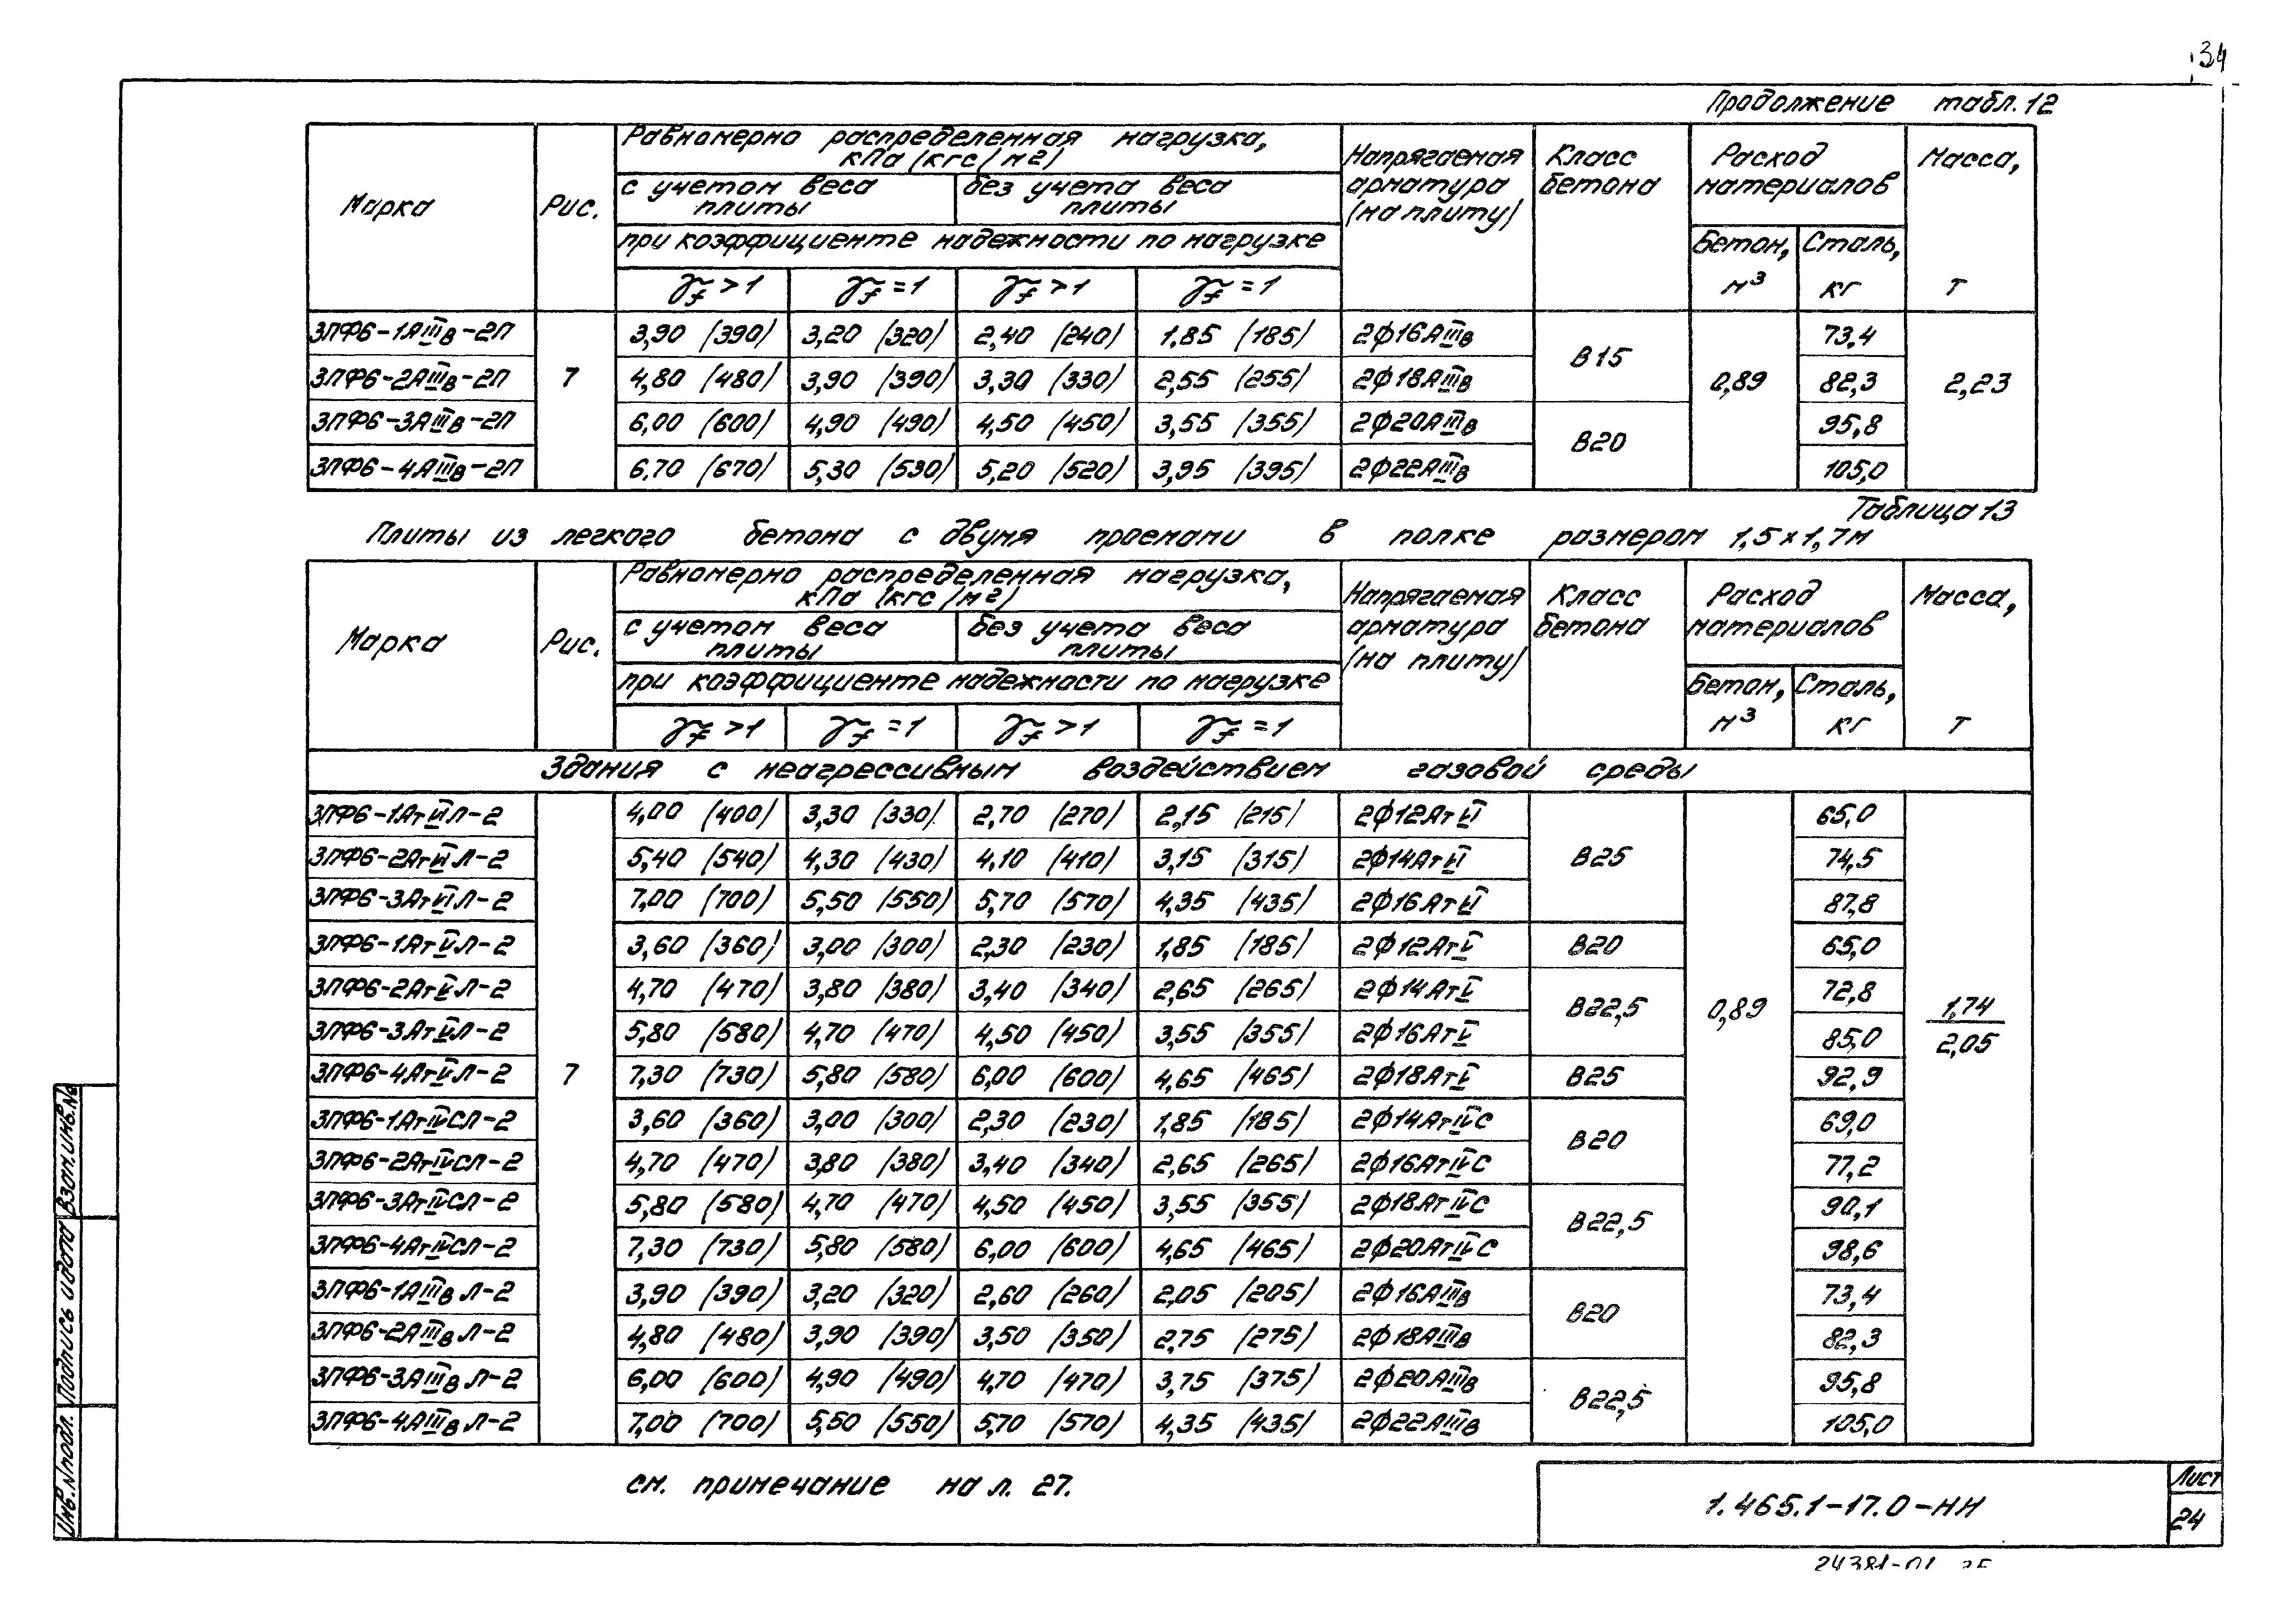 34
Продолжение табл. 12
Марка
Рис.
Равномерно распределенная нагрузка,
кПа (кгс/м2)
с учетом веса
плиты
без учета веса
плиты
при коэффициенте надежности по нагрузке
γf >1 γf =1 γf >1 γf =1
Напрягаемая
арматура
(на плиту)
Класс
бетона
Расход
материалов
Бетон,
м³
Сталь,
кг
Масса,
т
3ПФ6-1АIIIв-2П 3,90 (390) 3,20 (320) 2,40 (240) 1,85 (185) 2ф16АIIIв В15 73,4
3ПФ6-2АIIIв-2П 7 4,80 (480) 3,90 (390) 3,30 (330) 2,55 (255) 2ф18АIIIв 0,89 82,3 2,23
3ПФ6-3АIIIв-2П 6,00 (600) 4,90 (490) 4,50 (450) 3,55 (355) 2ф20АIIIв В20 95,8
3ПФ6-4АIIIв-2П 6.70 (670) 5,30 (530) 5,20 (520) 3,95 (395) 2ф22АIIIв 105,0
Таблица 13
Плиты из легкого бетона с двумя проемами в полке размером 1,5×1,7м
Марка
Рис.
Равномерно распределенная нагрузка,
кПа (кгс/м2)
с учетом веса
плиты
без учета веса
плиты
при коэффициенте надежности по нагрузке
γf >1 γf =1 γf >1 γf =1
Напрягаемая
арматура
(на плиту)
Класс
бетона
Расход
материалов
Бетон,
м³
Сталь,
кг
Масса,
т
Здания с неагрессивным воздействием газовой среды
3ПФ6-1АтVIЛ-2 4,00 (400) 3,30 (330) 2,70 (270) 2,15 (215) 2ф12АтVI 65,0
3ПФ6-2АтVIЛ-2 5,40 (540) 4,30 (430) 4,10 (410) 3,15 (315) 2ф14АтVI В25 74,5
3ПФ6-3АтVIЛ-2 7,00 (700) 5,50 (550) 5,70 (570) 4,35 (435) 2ф16АтVI 87,8
3ПФ6-1АтVЛ-2 3,60 (360) 3,00 (300) 2,30 (230) 1,85 (185) 2ф12АтV В20 65,0
3ПФ6-2АтVЛ-2 4,70 (470) 3,80 (380) 3,40 (340) 2,65 (265) 2ф14АтV В22,5 0,89 72,8 1,74
3ПФ6-3АтVЛ-2 5,80 (580) 4,70 (470) 4,50 (450) 3,55 (355) 2ф16АтV 85,0 2,05
3ПФ6-4АтVЛ-2 7 7,30 (730) 5,80 (580) 6,00 (600) 4,65 (465) 2ф18АтV В25 92,9
3ПФ6-1АтIVСЛ-2 3,60 (360) 3,00 (300) 2,30 (230) 1,85 (185) 2ф14АтIVС В20 69,0
3ПФ6-2АтIVСЛ-2 4,70 (470) 3,80 (380) 3,40 (340) 2,65 (265) 2ф16АтIVС 77,2
3ПФ6-3АтIVСЛ-2 5,80 (580) 4,70 (470) 4,50 (450) 3,55 (355) 2ф18АтIVС В22,5 90,1
3ПФ6-4АтIVСЛ-2 7,30 (730) 5,80 (580) 6,00 (600) 4,65 (465) 2ф20АтIVС 98,6
3ПФ6-1АIIIв Л-2 3,90 (390) 3,20 (320) 2,60 (260) 2,05 (205) 2ф16АIIIв В20 73,4
3ПФ6-2АIIIв Л-2 4,80 (480) 3,90 (390) 3,50 (350) 2,75 (275) 2ф18АIIIв 82,3
3ПФ6-3АIIIв Л-2 6,00 (600) 4,90 (490) 4,70 (470) 3,75 (375) 2ф20АIIIв В22,5 95,8
3ПФ6-4АIIIв Л-2 7,00 (700) 5,50 (550) 5,70 (570) 4,35 (435) 2ф22АIIIв 105,0
см. примечание на л. 27.
1.465.1-17.0-НИ
Лист
24
Инв.№подл. Подпись и дата Взам.инв.№
24381-01